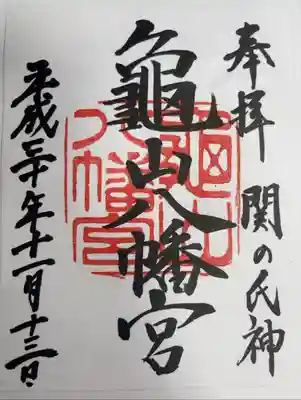 奉拝 関の氏神
龜山八幡宮
亀山八幡宮
平成三十年十一月十三日